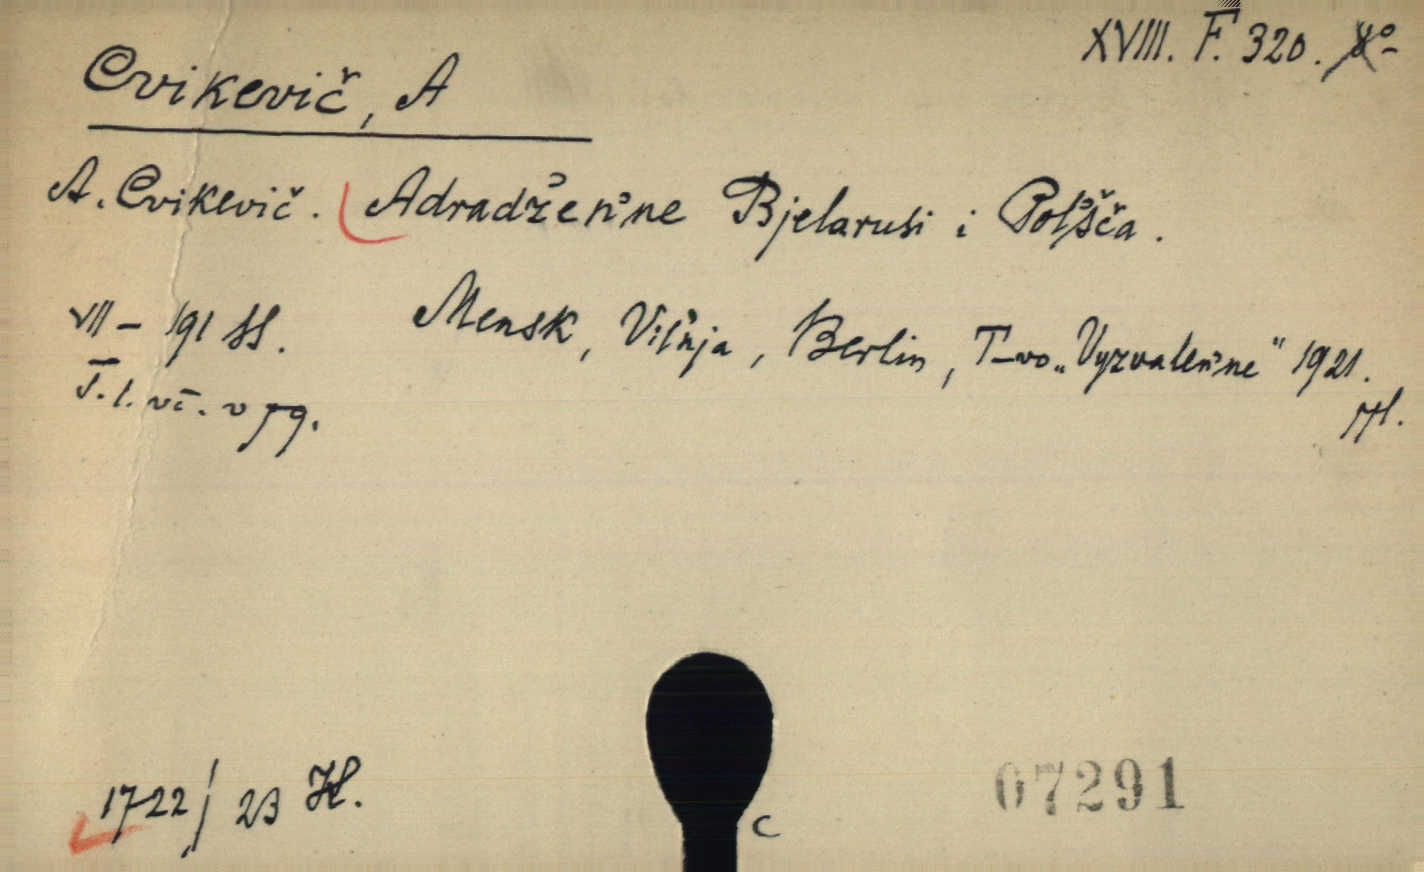 XVIII. F. 320. 8º-
Cvikevič, A
A. Cvikevič. Adradžen'ne Bjelarusi i Pol'šča.
VII - 191 SS. Mensk, Vil'nja, Berlin, T-vo „Vyzvalen'ne" 1921.
1722/23 H.
07291
C